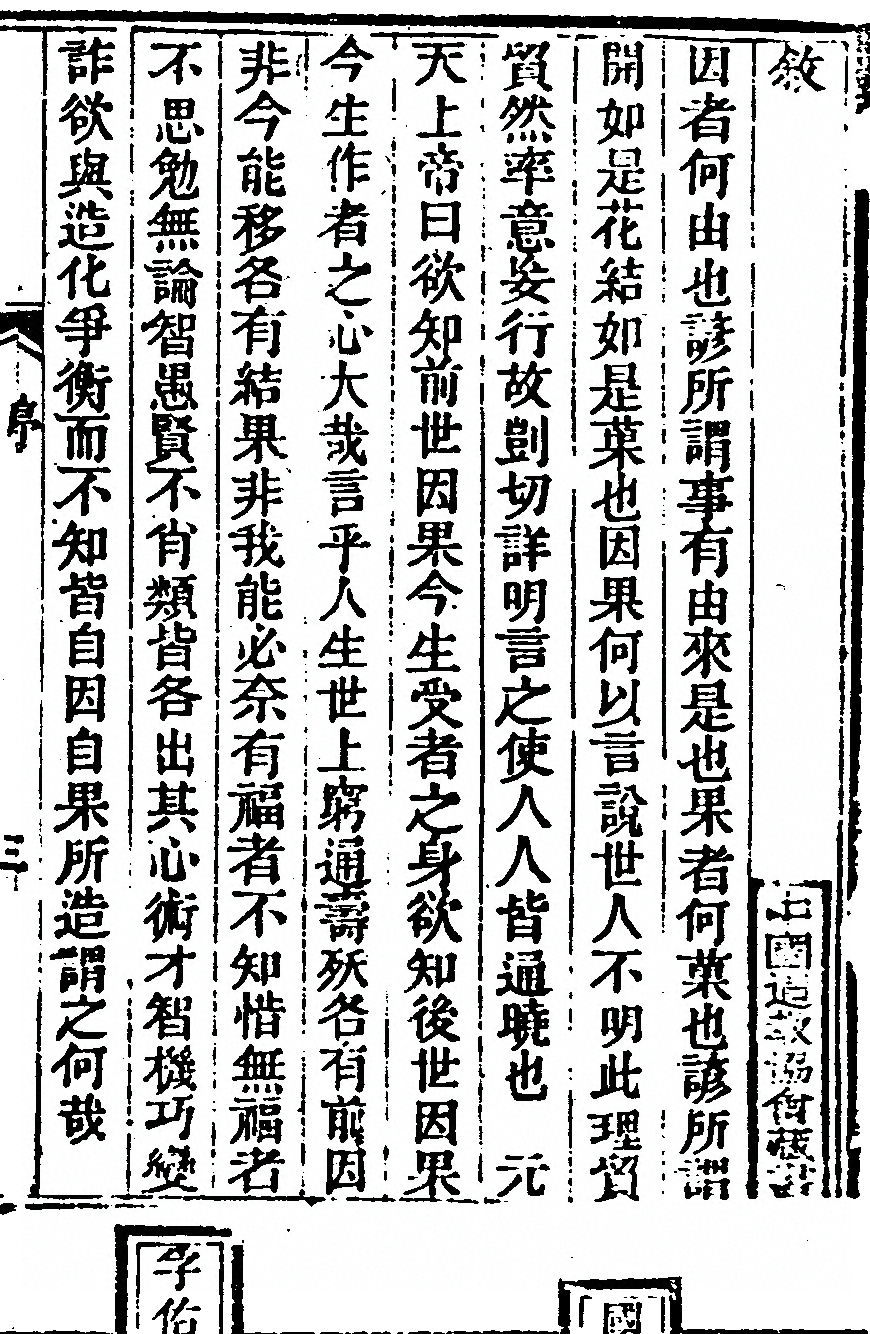 敘
因者何由也諺所謂事有由來是也果者何菓也諺所謂
開如是花結如是菓也因果何以言說世人不明此理貿
貿然率意妄行故剴切詳明言之使人人皆通曉也　元
天上帝曰欲知前世因果今生受者之身欲知後世因果
今生作者之心大哉言乎人生世上窮通壽殀各有前因
非今能移各有結果非我能必奈有福者不知惜無福者
不思勉無論智愚賢不肖類皆各出其心術才智機巧變
詐欲與造化爭衡而不知皆自因自果所造謂之何哉
序
三
中國道教協會藏書
國